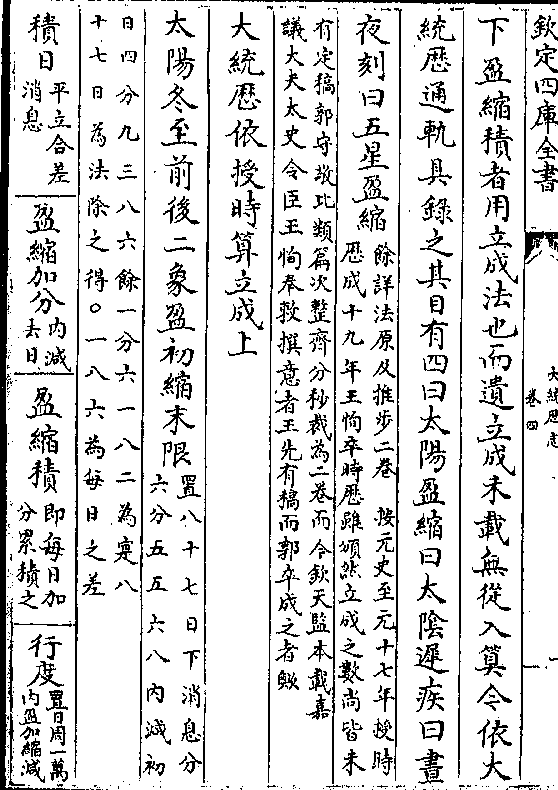 欽定四庫全書
大統歷志
卷四
下盈縮積者用立成法也而遺立成未載無從入算今依大
統歷通軌具錄之其目有四曰太陽盈縮曰太陰遲疾曰晝
夜刻曰五星盈縮
餘詳法原及推步二卷 按元史至元十七年授時
歷成十九年王恂卒時歷雖頒然立成之數尚皆未
有定稿郭守敬比類篇次整齊分秒裁為二卷而今欽天監本載嘉
議大夫太史令臣王恂奉敕撰意者王先有稿而郭卒成之者歟
大統歷依授時算立成上
太陽冬至前後二象盈初縮末限
置八十七日下消息分
六分五五六八內減初
日四分九三八六餘一分六一八二為寔八
十七日為法除之得○一八六為每日之差
積日
平立合差
消息
盈縮加分
內減
去日
盈縮積
即每日加
分累積之
行度
置日周一萬
內盈加縮減